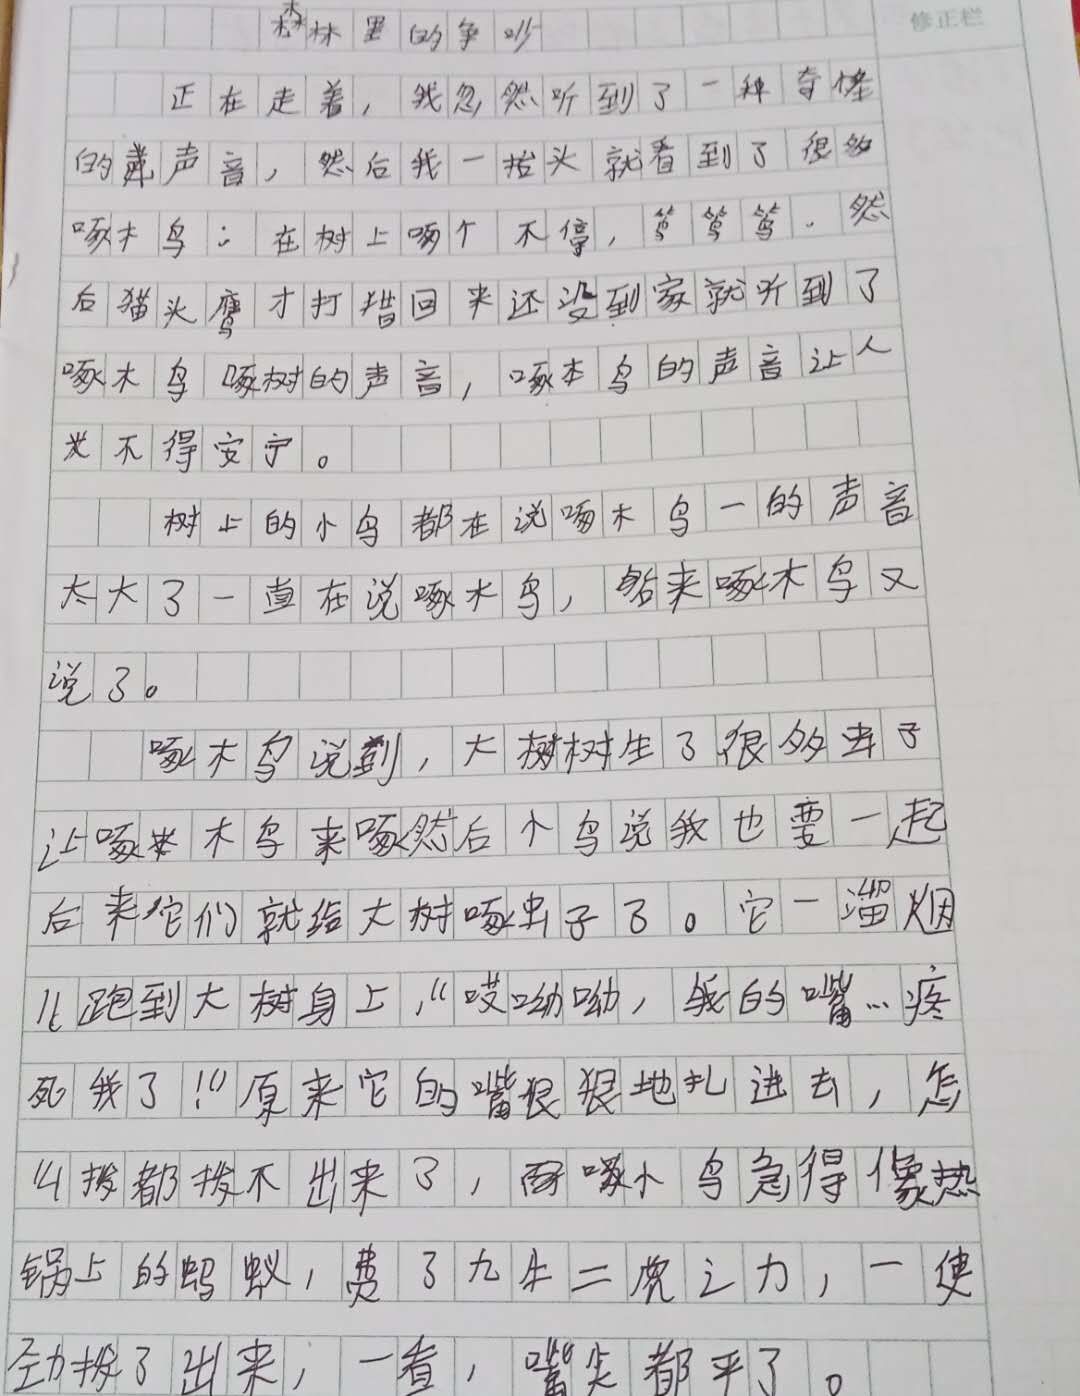 森林里的争吵
修正栏
正在走着，我忽然听到了一种奇怪
的声音，然后我一抬头就看到了很多
啄木鸟：在树上啄个不停，笃笃笃．然
后猫头鹰才打猎回来还没到家就听到了
啄木鸟啄树的声音，啄木鸟的声音让人
不得安宁。
树上的小鸟都在说啄木鸟一的声音
太大了一直在说啄木鸟，后来啄木鸟又
说了。
啄木鸟说到，大树树生了很多虫子
让啄木鸟来啄然后小鸟说我也要一起
后来它们就给大树啄虫子了。它一溜烟
儿跑到大树身上，“哎呦呦，我的嘴…疼
死我了！”原来它的嘴狠狠地扎进去，怎
么拔都拔不出来了，啄小鸟急得像热
锅上的蚂蚁，费了九牛二虎之力，一使
劲拔了出来，一看，嘴尖都平了。